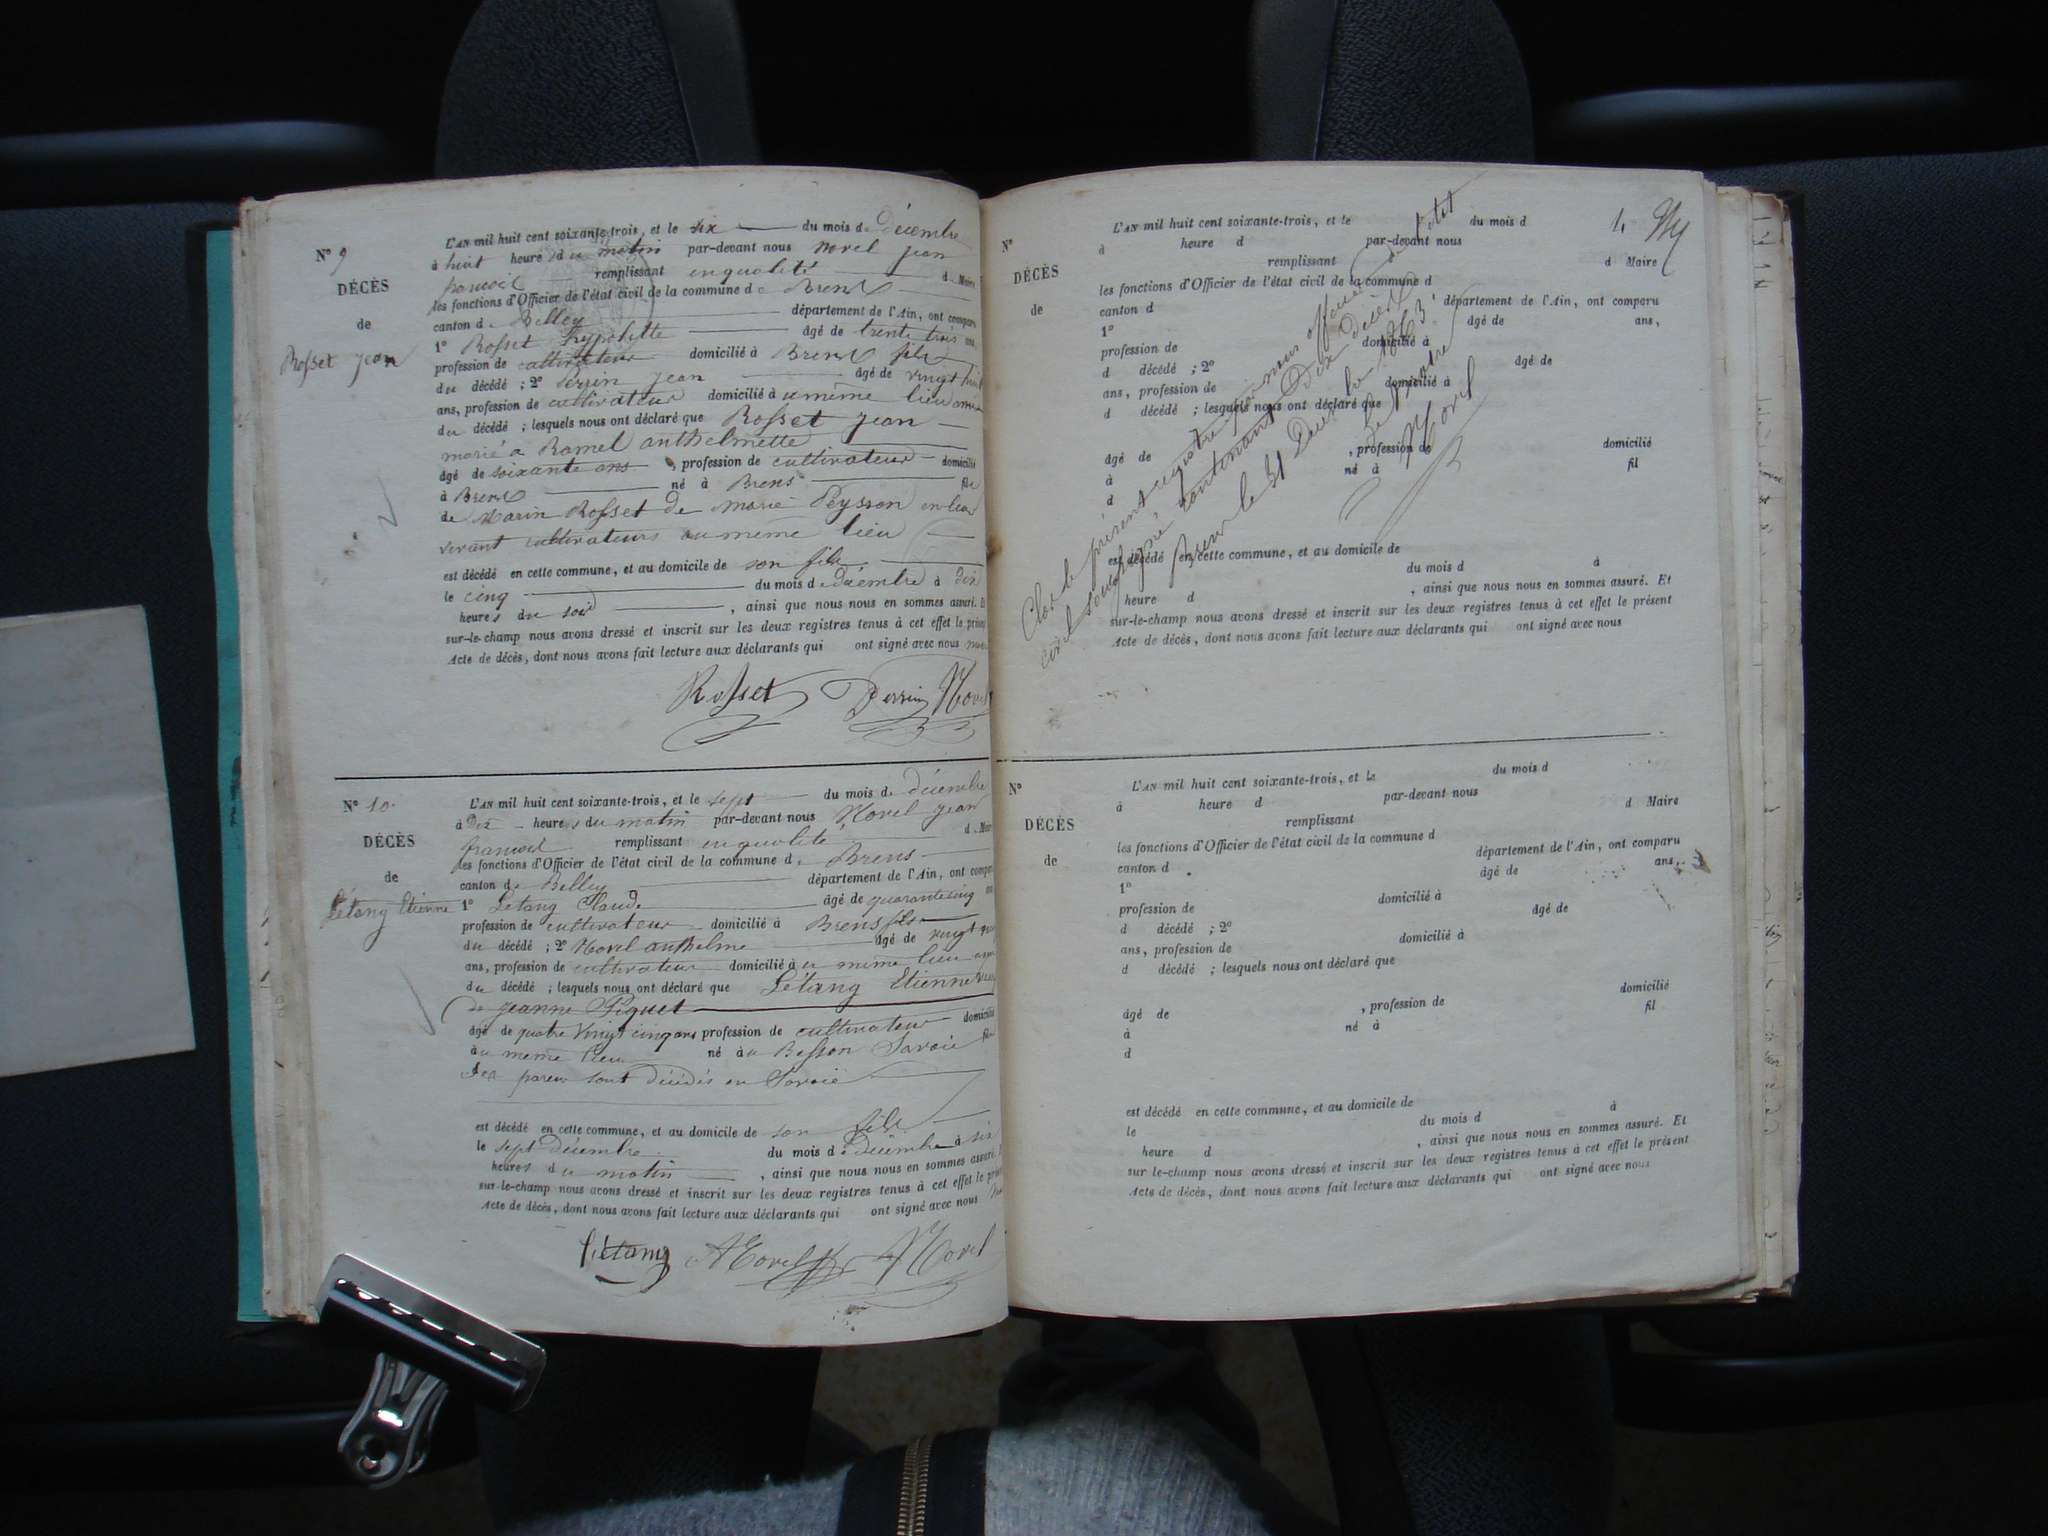 N° 9
DÉCÈS
de
Rosset jean
L'AN mil huit cent soixante-trois, et le six du mois de décembre
à huit heures du matin par-devant nous Morel jean
francois remplissant en qualité de Maire
les fonctions d'Officier de l'état civil de la commune de Brens
canton de Belley département de l'Ain, ont comparu
1° Rosset hypolitte âgé de trente trois ans
profession de cultivateur domicilié à Brens fils
du décédé ; 2° Perrin jean âgé de vingt huit
ans, profession de cultivateur domicilié à u même lieu ami
du décédé ; lesquels nous ont déclaré que Rosset jean
marié a Ramel anthelmette
âgé de soixante ans, profession de cultivateur domicilié
à Brens né à Brens fils
de Marin Rosset de marie Peysson en leur
vivant cultivateurs au même lieu
est décédé en cette commune, et au domicile de son fils
le cinq du mois de décembre à dix
heures du soir, ainsi que nous nous en sommes assuré. Et
sur-le-champ nous avons dressé et inscrit sur les deux registres tenus à cet effet le présent
Acte de décès, dont nous avons fait lecture aux déclarants qui ont signé avec nous
Rosset Perrin Morel
N° 10.
DÉCÈS
de
Létang Etienne
L'AN mil huit cent soixante-trois, et le sept du mois de décembre
à Dix heures du matin par-devant nous Morel jean
francois remplissant en qualité de Maire
les fonctions d'Officier de l'état civil de la commune de Brens
canton de Belley département de l'Ain, ont comparu
1° Létang Claude âgé de quarante cinq ans
profession de cultivateur domicilié à Brens fils
du décédé ; 2° Morel anthelme âgé de vingt
ans, profession de cultivateur domicilié à u même lieu ami
du décédé ; lesquels nous ont déclaré que Létang Etienne veuf
de jeanne Piquet
âgé de quatre vingt cinq ans profession de cultivateur domicilié
à u même lieu né à u Besson Savoie fils
des parens sont décédés en Savoie
est décédé en cette commune, et au domicile de son fils
le sept décembre du mois de décembre à six
heures du matin, ainsi que nous nous en sommes assuré.
sur-le-champ nous avons dressé et inscrit sur les deux registres tenus à cet effet le présent
Acte de décès, dont nous avons fait lecture aux déclarants qui ont signé avec nous
Létang AMorel Morel
N°
DÉCÈS
de
L'AN mil huit cent soixante-trois, et le du mois d
à heure d par-devant nous
remplissant d Maire
les fonctions d'Officier de l'état civil de la commune d
canton d département de l'Ain, ont comparu
1° âgé de ans,
profession de domicilié à
d décédé ; 2° âgé de
ans, profession de domicilié à
d décédé ; lesquels nous ont déclaré que
âgé de , profession de domicilié
à né à fil
d
est décédé en cette commune, et au domicile de
du mois d à
heure d , ainsi que nous nous en sommes assuré. Et
sur-le-champ nous avons dressé et inscrit sur les deux registres tenus à cet effet le présent
Acte de décès, dont nous avons fait lecture aux déclarants qui ont signé avec nous
Clos le présent registre par nous officier de l'état
civil soussigné contenant Dix décès
Brens le 31 Décembre 1863
Morel
N°
DÉCÈS
de
L'AN mil huit cent soixante-trois, et le du mois d
à heure d par-devant nous
remplissant d Maire
les fonctions d'Officier de l'état civil de la commune d
canton d département de l'Ain, ont comparu
1° âgé de ans,
profession de domicilié à
d décédé ; 2° âgé de
ans, profession de domicilié à
d décédé ; lesquels nous ont déclaré que
âgé de , profession de domicilié
à né à fil
d
est décédé en cette commune, et au domicile de
le du mois d à
heure d , ainsi que nous nous en sommes assuré. Et
sur le-champ nous avons dressé et inscrit sur les deux registres tenus à cet effet le présent
Acte de décès, dont nous avons fait lecture aux déclarants qui ont signé avec nous